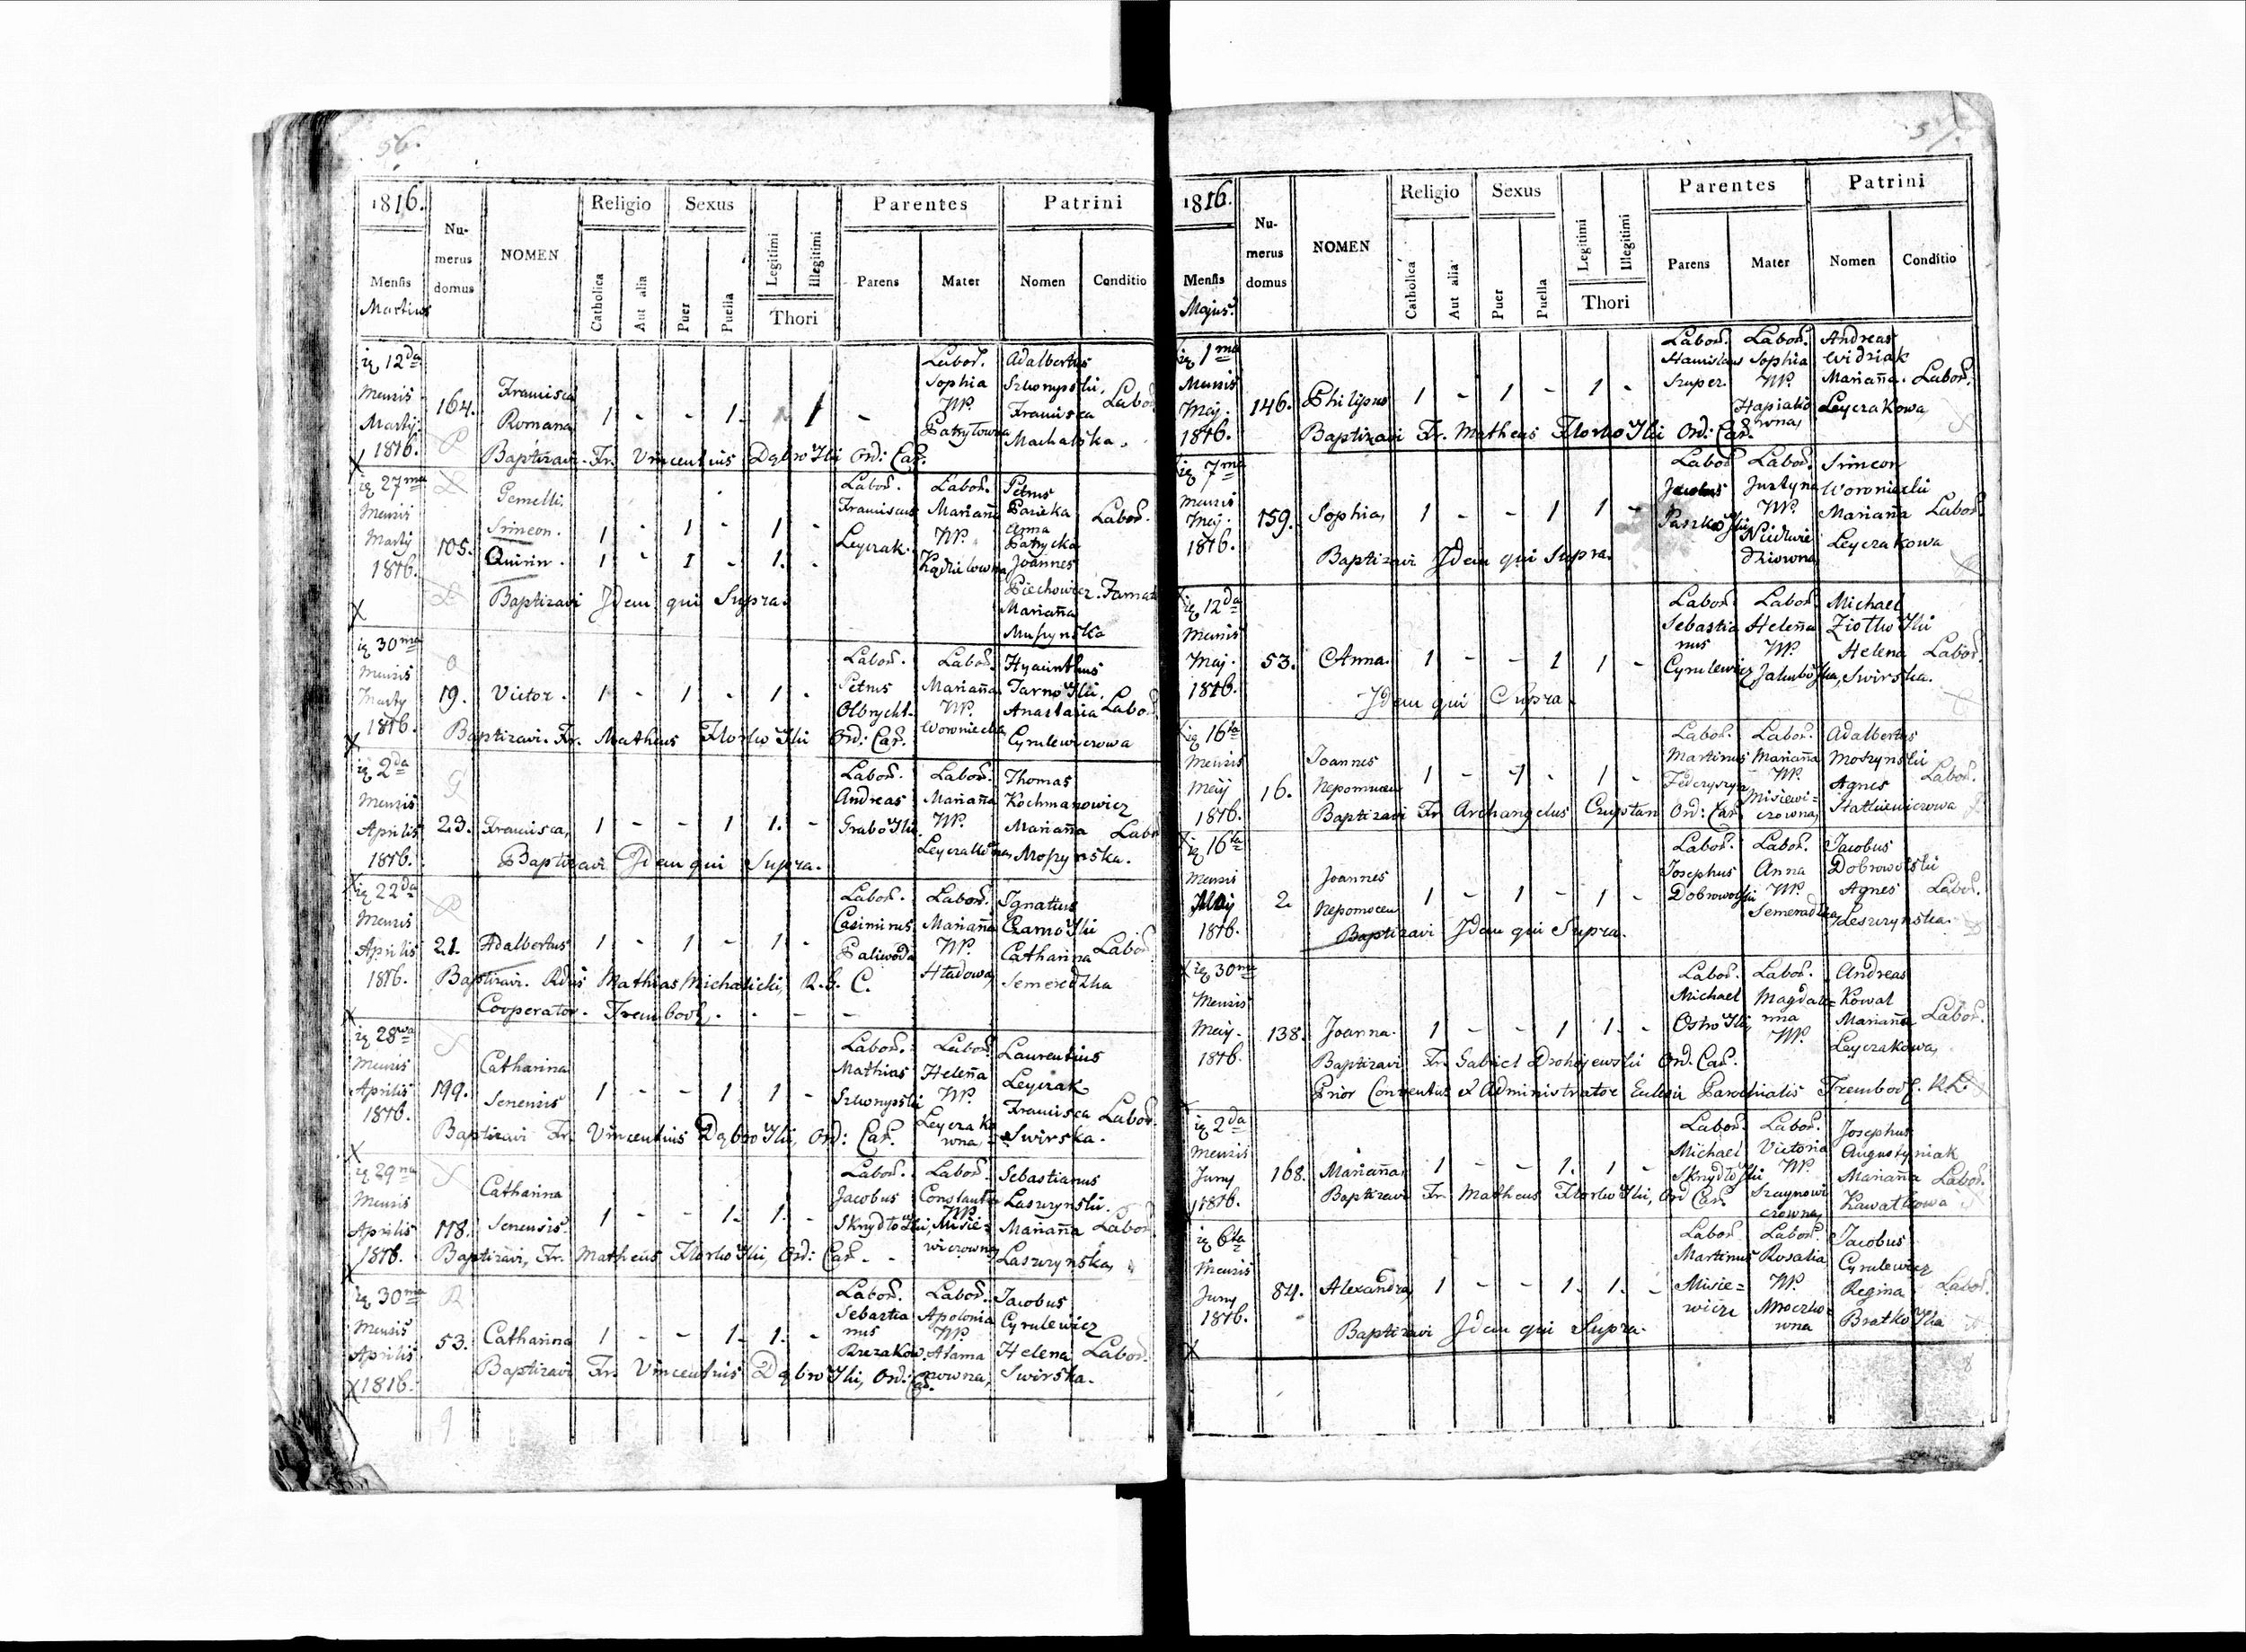 56.
1816.
Nu-
merus
domus
NOMEN
Religio
Sexus
Legitimi
Illegitimi
Parentes
Patrini
Mensis
Martius
Catholica
Aut alia
Puer
Puella
Thori
Parens
Mater
Nomen
Conditio
12da
Mensis
Martij
1816.
164.
Francisca
Romana
1 - - 1. 1 -
Labor.
Sophia
NP.
Adalbertus
Francisca
Machalska.
Labor
Baptizavi Fr. Vincentius Dąbrowski Ord: Car.
27ma
Mensis
Martij
1816.
105.
Gemelli.
Simeon.
Quirin.
1 - 1 - 1 -
1 - 1 - 1. -
Labor.
Franciscus
Leyczak.
Labor.
Marianna
NP.
Petrus
Anna
Patrycka
Joannes
Piechowicz.
Marianna
Muszynska
Labor.
Baptizavi Idem qui Supra.
30ma
Mensis
Marty
1816.
19.
Victor.
1 - 1 - 1 -
Labor.
Petrus
Olbrycht.
Labor.
Marianna
NP.
Woroniecka
Hyacinthus
Tarnowski.
Anastasia
Cyrulewiczowa
Labor
Baptizavi. Fr. Matheus Florkowski Ord: Car.
2da
Mensis
Aprilis
1816.
23.
Francisca,
1 - - 1 1. -
Labor.
Andreas
Grabowski.
Labor.
Marianna
NP.
Thomas
Kochmanowicz
Marianna
Moszynska.
Labor
Baptizavi Idem qui Supra.
22da
Mensis
Aprilis
1816.
21.
Adalbertus
1 - 1 - 1 -
Labor.
Casimirus
Paliwoda
Labor.
Marianna
NP.
Hładowa,
Ignatius
Czarnowski
Catharina
Semeredzka
Labor
Baptizavi. Rdus Mathias Michalicki, R. L. C.
Cooperator. Trembovl. - - -
28va
Mensis
Aprilis
1816.
199.
Catharina
Senensis
1 - - 1 1 -
Labor.
Mathias
Labor.
Helena
NP.
Leyczako
wna
Laurentius
Leyczak
Francisca
Swirska.
Labor.
Baptizavi Fr. Vincentius Dąbrowski, Ord: Car.
29na
Mensis
Aprilis
1816.
118.
Catharina
Senensis.
1 - - 1. 1. -
Labor.
Jacobus
Skrydłowski,
Labor.
NP.
Misie=
wiczowna
Sebastianus
Laszczynski.
Marianna
Laszczynska,
Labor
Baptizavi, Fr. Matheus Florkowski, Ord: Car. - -
30ma
Mensis
Aprilis
1816.
53.
Catharina
1 - - 1. 1. -
Labor.
Sebastia
nus
Labor.
Apolonia
NP.
Jacobus
Cyrulewicz
Helena
Swirska.
Labor.
Baptizavi Fr. Vincentius Dąbrowski, Ord: Car.
57.
1816.
Nu-
merus
domus
NOMEN
Religio
Sexus
Legitimi
Illegitimi
Parentes
Patrini
Mensis
Majus.
Catholica
Aut alia
Puer
Puella
Thori
Parens
Mater
Nomen
Conditio
1ma
Mensis
Maij.
1816.
146.
Philipus
1 - 1 - 1 -
Labor.
Stanislaus
Szuper.
Labor.
Sophia
NP.
Andreas
Widziak
Marianna.
Leyczakowa
Labor.
Baptizavi Fr. Matheus Florkowski Ord: Car.
7ma
Mensis
Maij.
1816.
159.
Sophia,
1 - - 1 1 -
Labor.
Jacobus
Paszkowski
Labor.
Justyna
NP.
Niedzwie
dziowna
Simeon
Woroniecki
Marianna
Leyczakowa
Labor.
Baptizavi Idem qui Supra.
12da
Mensis
Maij.
1816.
53.
Anna.
1 - - 1 1 -
Labor.
Sebastia
nus
Cyrulewicz
Labor.
Helena
NP.
Jakubowska,
Michael
Ziołkowski
Helena
Swirska.
Labor.
Idem qui Supra.
16ta
Mensis
Maij
1816.
16.
Joannes
Nepomucen
1 - 1 - 1 -
Labor.
Martinus
Federyszyn
Labor.
Marianna
NP.
Misiewi=
czowna,
Adalbertus
Moszynski
Agnes
Labor.
Baptizavi Fr. Archangelus Crystan Ord: Car.
16ta
Mensis
Maij
1816.
2.
Joannes
Nepomocen
1 - 1 - 1 -
Labor.
Josephus
Dobrowolski
Labor.
Anna
NP.
Semeradzka,
Jacobus
Dobrowolski
Agnes
Leszczynska.
Labor.
Baptizavi Idem qui Supra.
30ma
Mensis
Maij.
1816.
138.
Joanna.
1 - - 1 1. -
Labor.
Michael
Ostrowski,
Labor.
Magdale=
nna
NP.
Andreas
Kowal
Marianna
Leyczakowa,
Labor.
Baptizavi Fr. Gabriel Drohojewski Ord. Car.
Prior Conventus & Administrator Ecclesiæ Parochialis Trembovl. R.L.
2da
Mensis
Juny
1816.
168.
Marianna,
1 - - 1. 1 -
Labor.
Michael
Skrydłowski
Labor.
Victoria
NP.
Szaynowi
czowna,
Josephus
Augustyniak
Marianna
Kawalkowa
Labor.
Baptizavi Fr. Matheus Florkowski, Ord Car.
6ta
Mensis
Juny
1816.
84.
Alexandra,
1 - - 1. 1. -
Labor.
Martinus
Misie=
wicz
Labor.
Rosalia
NP.
Mroczko=
wna
Jacobus
Cyrulewicz
Regina
Bratkowska
Labor.
Baptizavi Idem qui Supra.
8